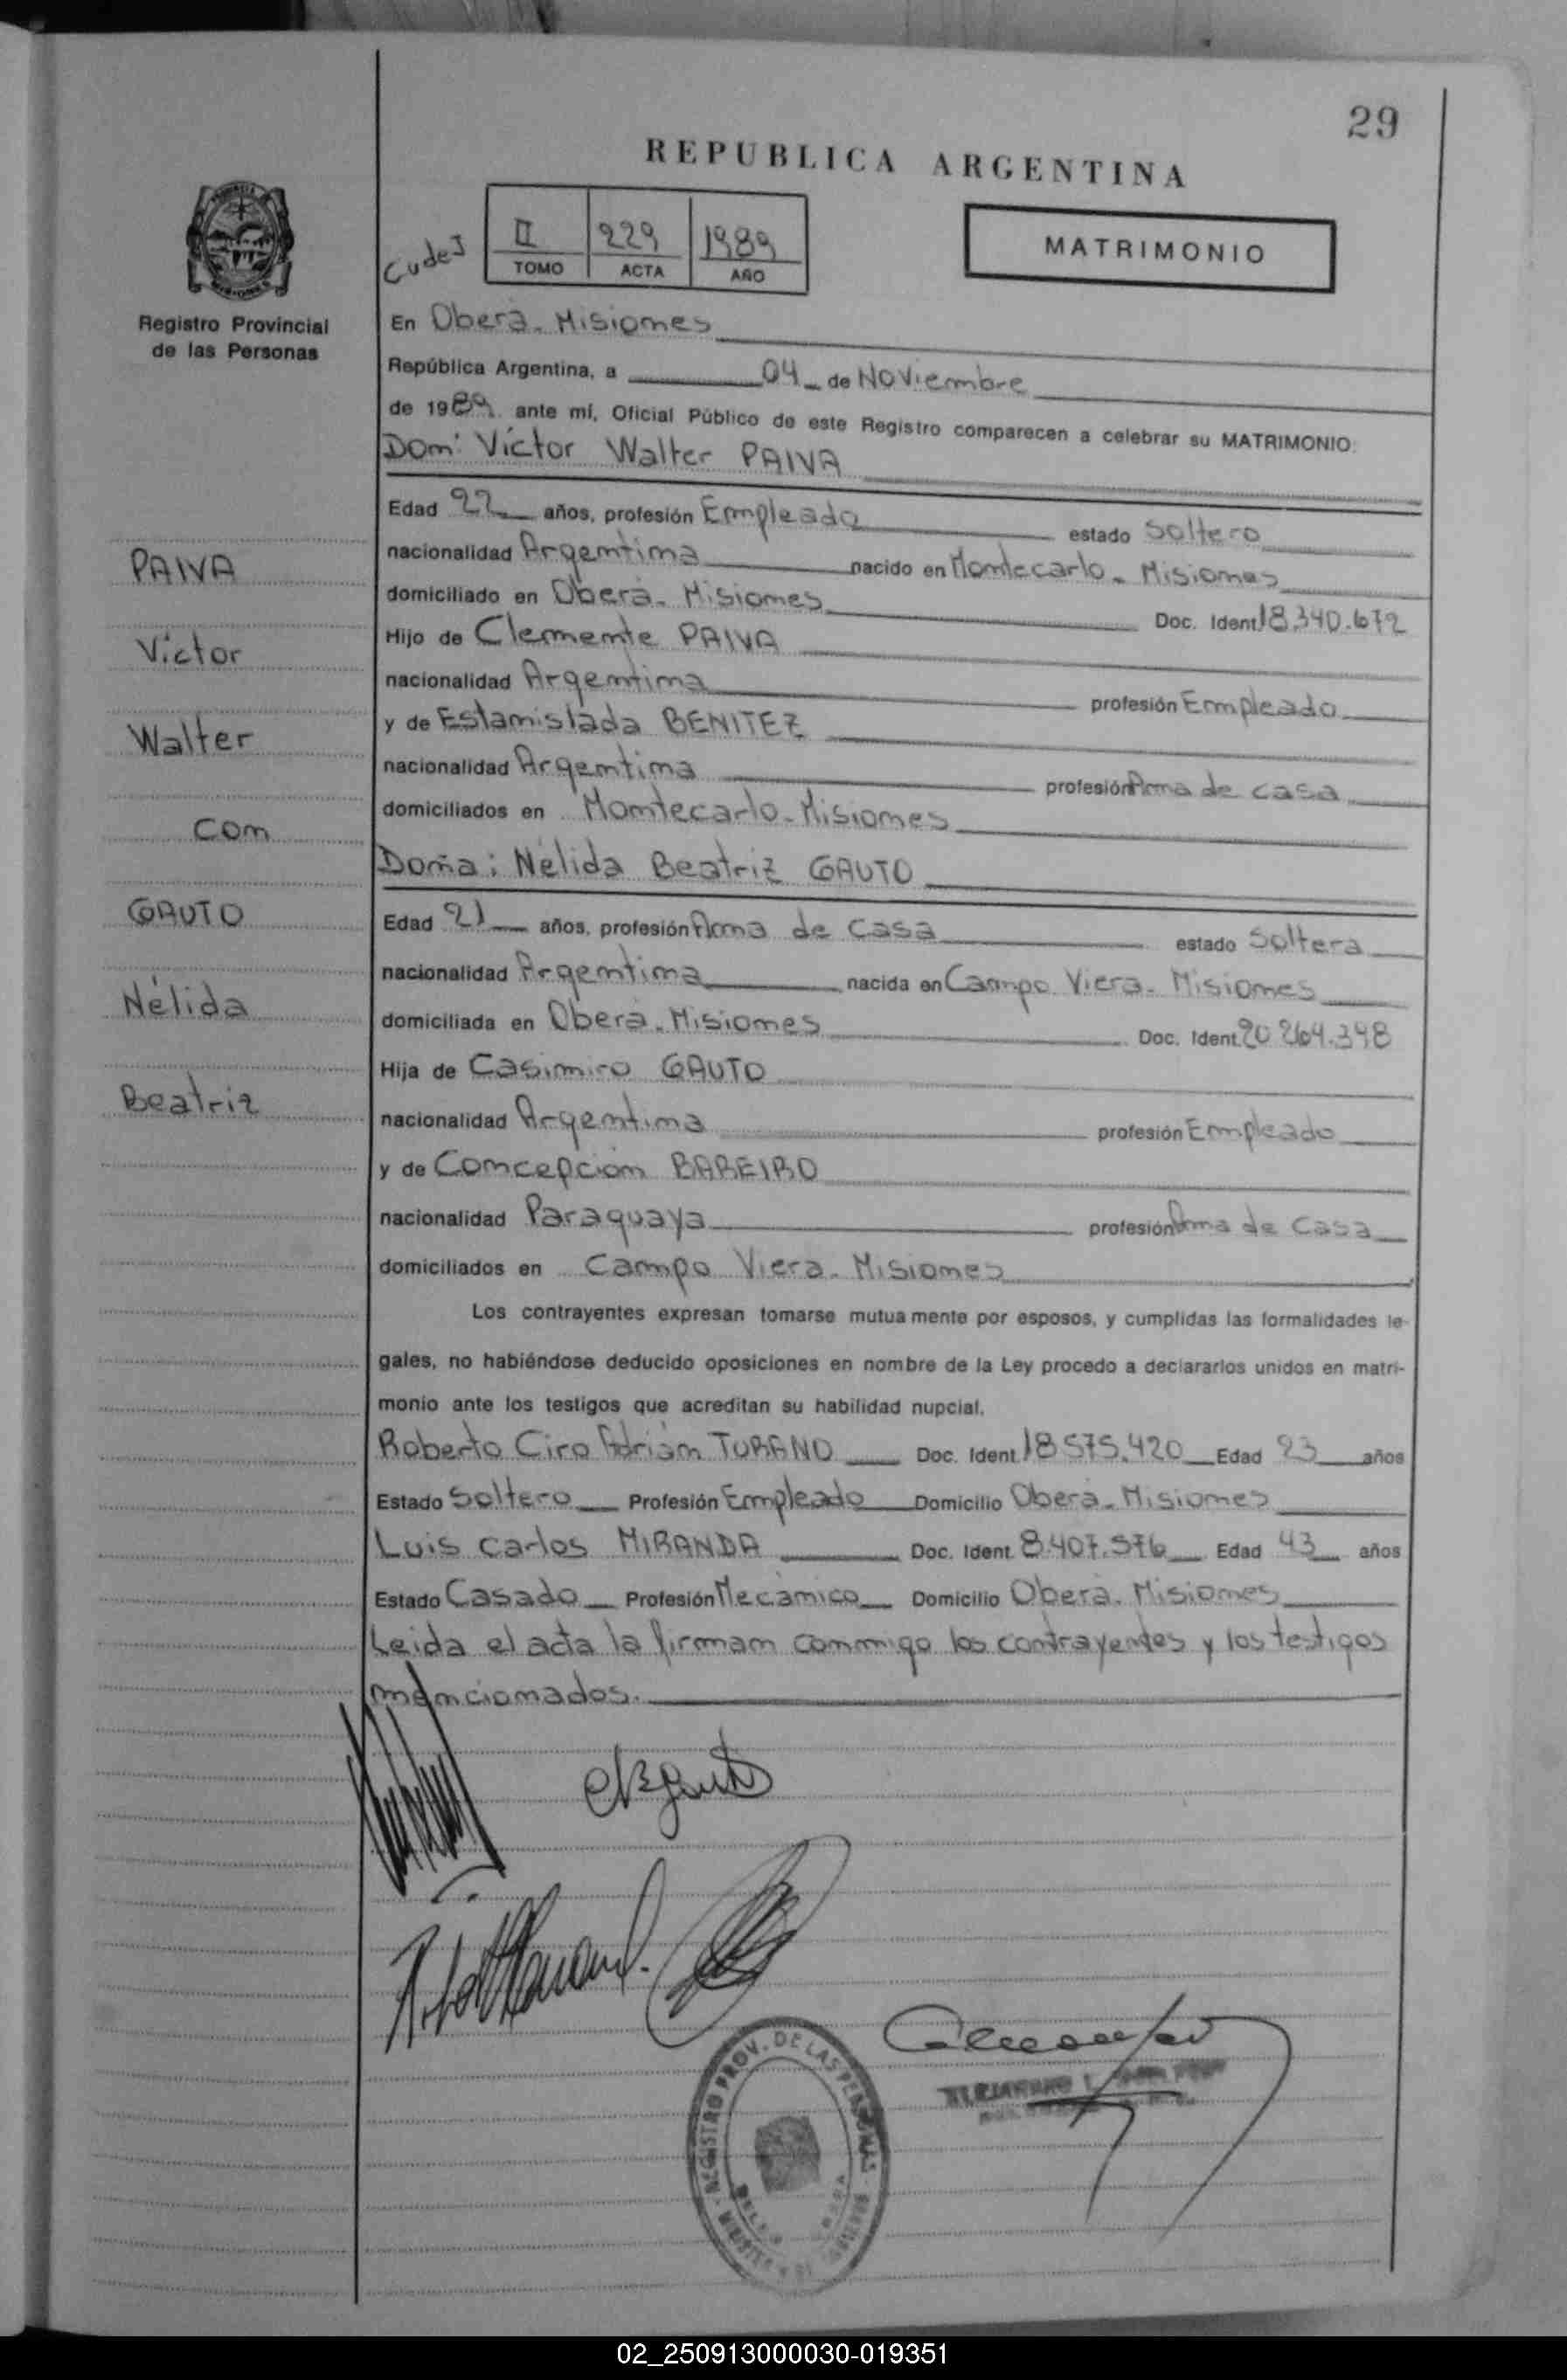 29
REPUBLICA ARGENTINA
CudeI
II 229 1989
TOMO ACTA AÑO
MATRIMONIO
Registro Provincial
de las Personas
En Oberá - Misiones
República Argentina, a 04 - de Noviembre
de 1989 ante mí, Oficial Público de este Registro comparecen a celebrar su MATRIMONIO:
Don: Víctor Walter PAIVA
Edad 22 años, profesión Empleado estado Soltero
nacionalidad Argentina nacido en Montecarlo - Misiones
domiciliado en Oberá - Misiones Doc. Ident. 18.340.672
Hijo de Clemente PAIVA
nacionalidad Argentina profesión Empleado
y de Estanislada BENITEZ
nacionalidad Argentina profesión Ama de casa
domiciliados en Montecarlo - Misiones
Doña: Nélida Beatriz GAUTO
Edad 21 años, profesión Ama de casa estado Soltera
nacionalidad Argentina nacida en Campo Viera - Misiones
domiciliada en Oberá - Misiones Doc. Ident. 20.264.348
Hija de Casimiro GAUTO
nacionalidad Argentina profesión Empleado
y de Concepción BAREIRO
nacionalidad Paraguaya profesión Ama de casa
domiciliados en Campo Viera - Misiones
Los contrayentes expresan tomarse mutuamente por esposos, y cumplidas las formalidades le-
gales, no habiéndose deducido oposiciones en nombre de la Ley procedo a declararlos unidos en matri-
monio ante los testigos que acreditan su habilidad nupcial.
Roberto Ciro Adrián TURANO Doc. Ident. 18.575.420 Edad 23 años
Estado Soltero Profesión Empleado Domicilio Oberá - Misiones
Luis Carlos MIRANDA Doc. Ident. 8.407.576 Edad 43 años
Estado Casado Profesión Mecánico Domicilio Oberá - Misiones
Leida el acta la firman conmigo los contrayentes y los testigos
mencionados.
PAIVA
Víctor
Walter
Con
GAUTO
Nélida
Beatriz
REGISTRO PROV. DE LAS PERSONAS
02_250913000030-019351